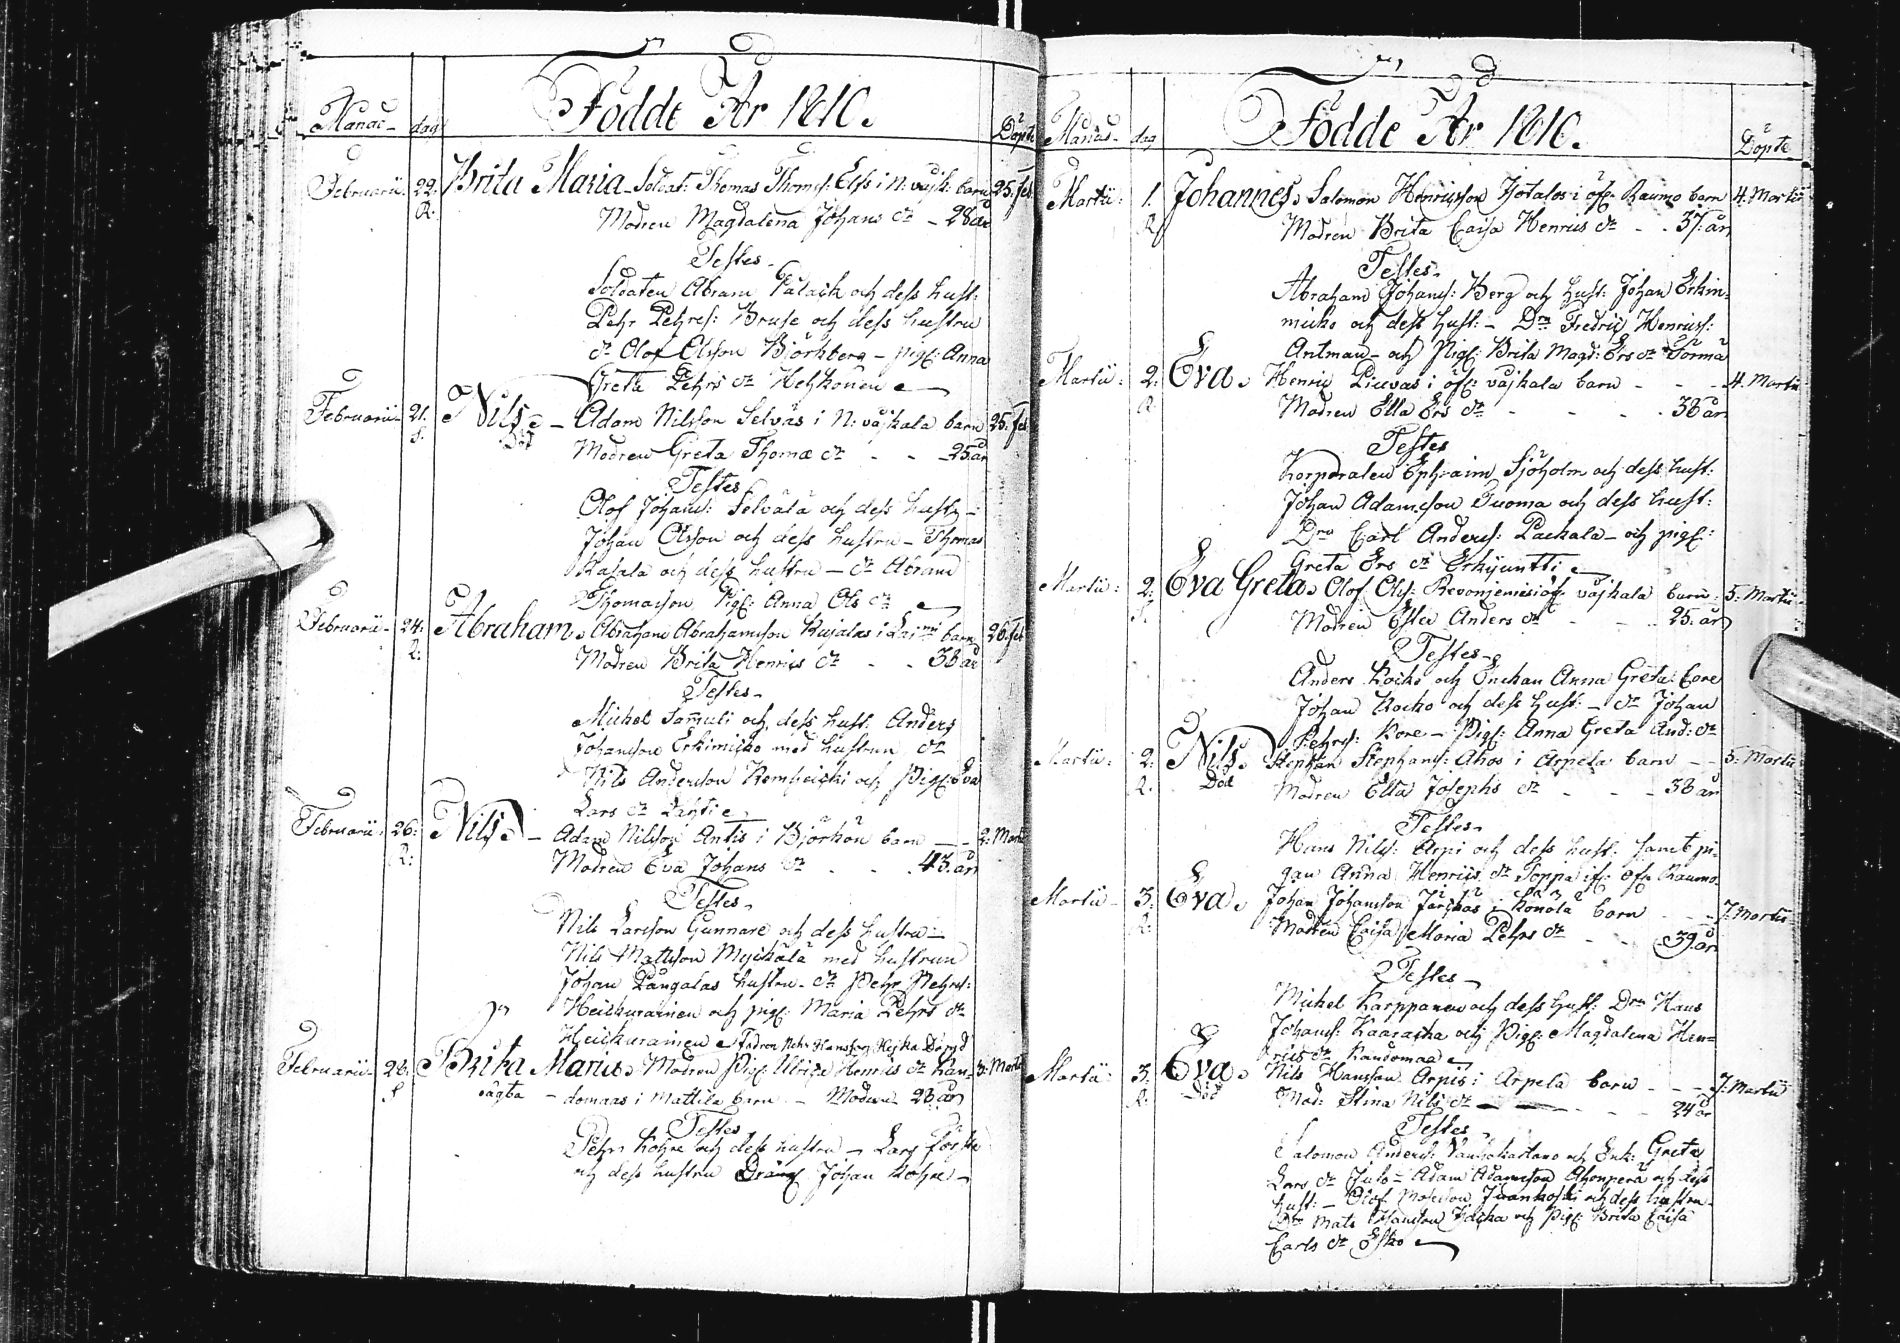 Månad dag Födde År 1810. Döpte
Februarii 22. Brita Maria Soldat: Thomas Thomæs: Elfs i N: vojk: barn 25. feb
R. Modren Magdalena Johans dr – 28 år
Testes
Soldaten Abram Palack och dess hust:
Pehr Pehrs: Bruse och dess hustru
dr Olof Olsson Björkberg – pig: Anna
Greta Pehrs dr Heiskonen
Februarii 21. Nils – Adam Nilsson Selväs i N: vojkala barn 25. feb
S. Död Modren Greta Thomæ dr – – 25 år
Testes
Olof Johans: Selvälä och dess hust –
Johan Olsson och dess hustru – Thomas
Kasala och dess hustru – dr Abram
Thomasson Pig: Anna Ols dr
Februarii 24: Abraham Abraham Abrahamsson Kujalas i barn 26. feb
R: Modren Brita Henrics dr – – 38 år
Testes
Michel Samuli och dess hust: Anders
Johansson Erkimicko med hustrun dr
Nils Andersson och Pig: Eva
Lars dr
Februarii 26: Nils – Adam Nilsson Antis i Björkön barn – – 2: Mart
R: Modren Eva Johans dr – – 43 år
Testes
Nils Larsson Gunnare och dess hustru –
Nils Mattsson Myckälä med hustrun
Johan Pångalas hustru – dr Pehr Pehrs:
Heickurainen och pig: Maria Pehrs dr
Heickurainen Fadren Pehr Hansson Hejka Dräng
Februarii 26: Brita Maria Modren Pig: Ulrica Henrics dr Kan- 3: Mart
S oägta – domaas i Mattila barn – Modren 23 år
Testes
Pehr Kohre och dess hustru – Lars
och dess hustru Dräng Johan Kohre –
Månad dag Födde År 1810. Döpte
Martii: 1. Johannes Salomon Henricsson Hjetalas i öfr Raumo barn 4. Martii
R Modren Brita Caisa Henrics dr – – 37. år
Testes
Abraham Johans: Berg och hust: Johan Erkin-
micko och dess hust: – Drn Fredric Henrics:
Antman – och Pig: Brita Magd: Ers dr Sorma
Martii: 2: Eva Henric Liuvas i öfr: vojkala barn – – – 4. Martii
R Modren Ella Ers dr – – – – 38 år
Testes
Korporalen Ephraim Sjöholm och dess hust:
Johan Adamsson Suoma och dess hust:
Drn Carl Anders: Packala – och pig:
Greta Ers dr Erkijuntti
Martii: 2: Eva Greta Olof Ols: i öfr vojkala barn 5. Martii
S. Modren Ester Anders dr – – 25. år
Testes
Anders Kocko och Enckan Anna Greta Core
Johan Kocko och dess hust: – dr Johan
Pehrs: Kore – Pig: Anna Greta And: dr
Martii: 2: Nils Stephan Stephans: Ahos i Arpela barn – – 5: Martii
R. Död Modren Ella Josephs dr – – – 38 år
Testes
Hans Nils: Arpi och dess hust: samt pi-
gan Anna Henrics dr Poppa ifr öfr Raumo
Martii 3: Eva Johan Johansson Järckäs i Könölä barn – – 7. Martii
R. Modren Caisa Maria Pehrs dr – – 39. år
Testes
Michel Karppanen och dess hust: Drn Hans
Johans: Kaaracka och Pig: Magdalena Hen-
rics dr Kandomaa
Martii 3. Eva Nils Hansson Arpis i Arpela barn – – – 7: Martii
R. Död Mod: Stina Nils dr – – – 24 år
Testes
Salomon Anders: Vanhakartano och Enk: Greta
Lars dr Juto – Adam Adamsson Ahonperä och dess
hust: – Olof Matsson Juankoski och dess hustru –
Drn Mats Hansson Jacka och Pig: Brita Caisa
Carls dr Esko